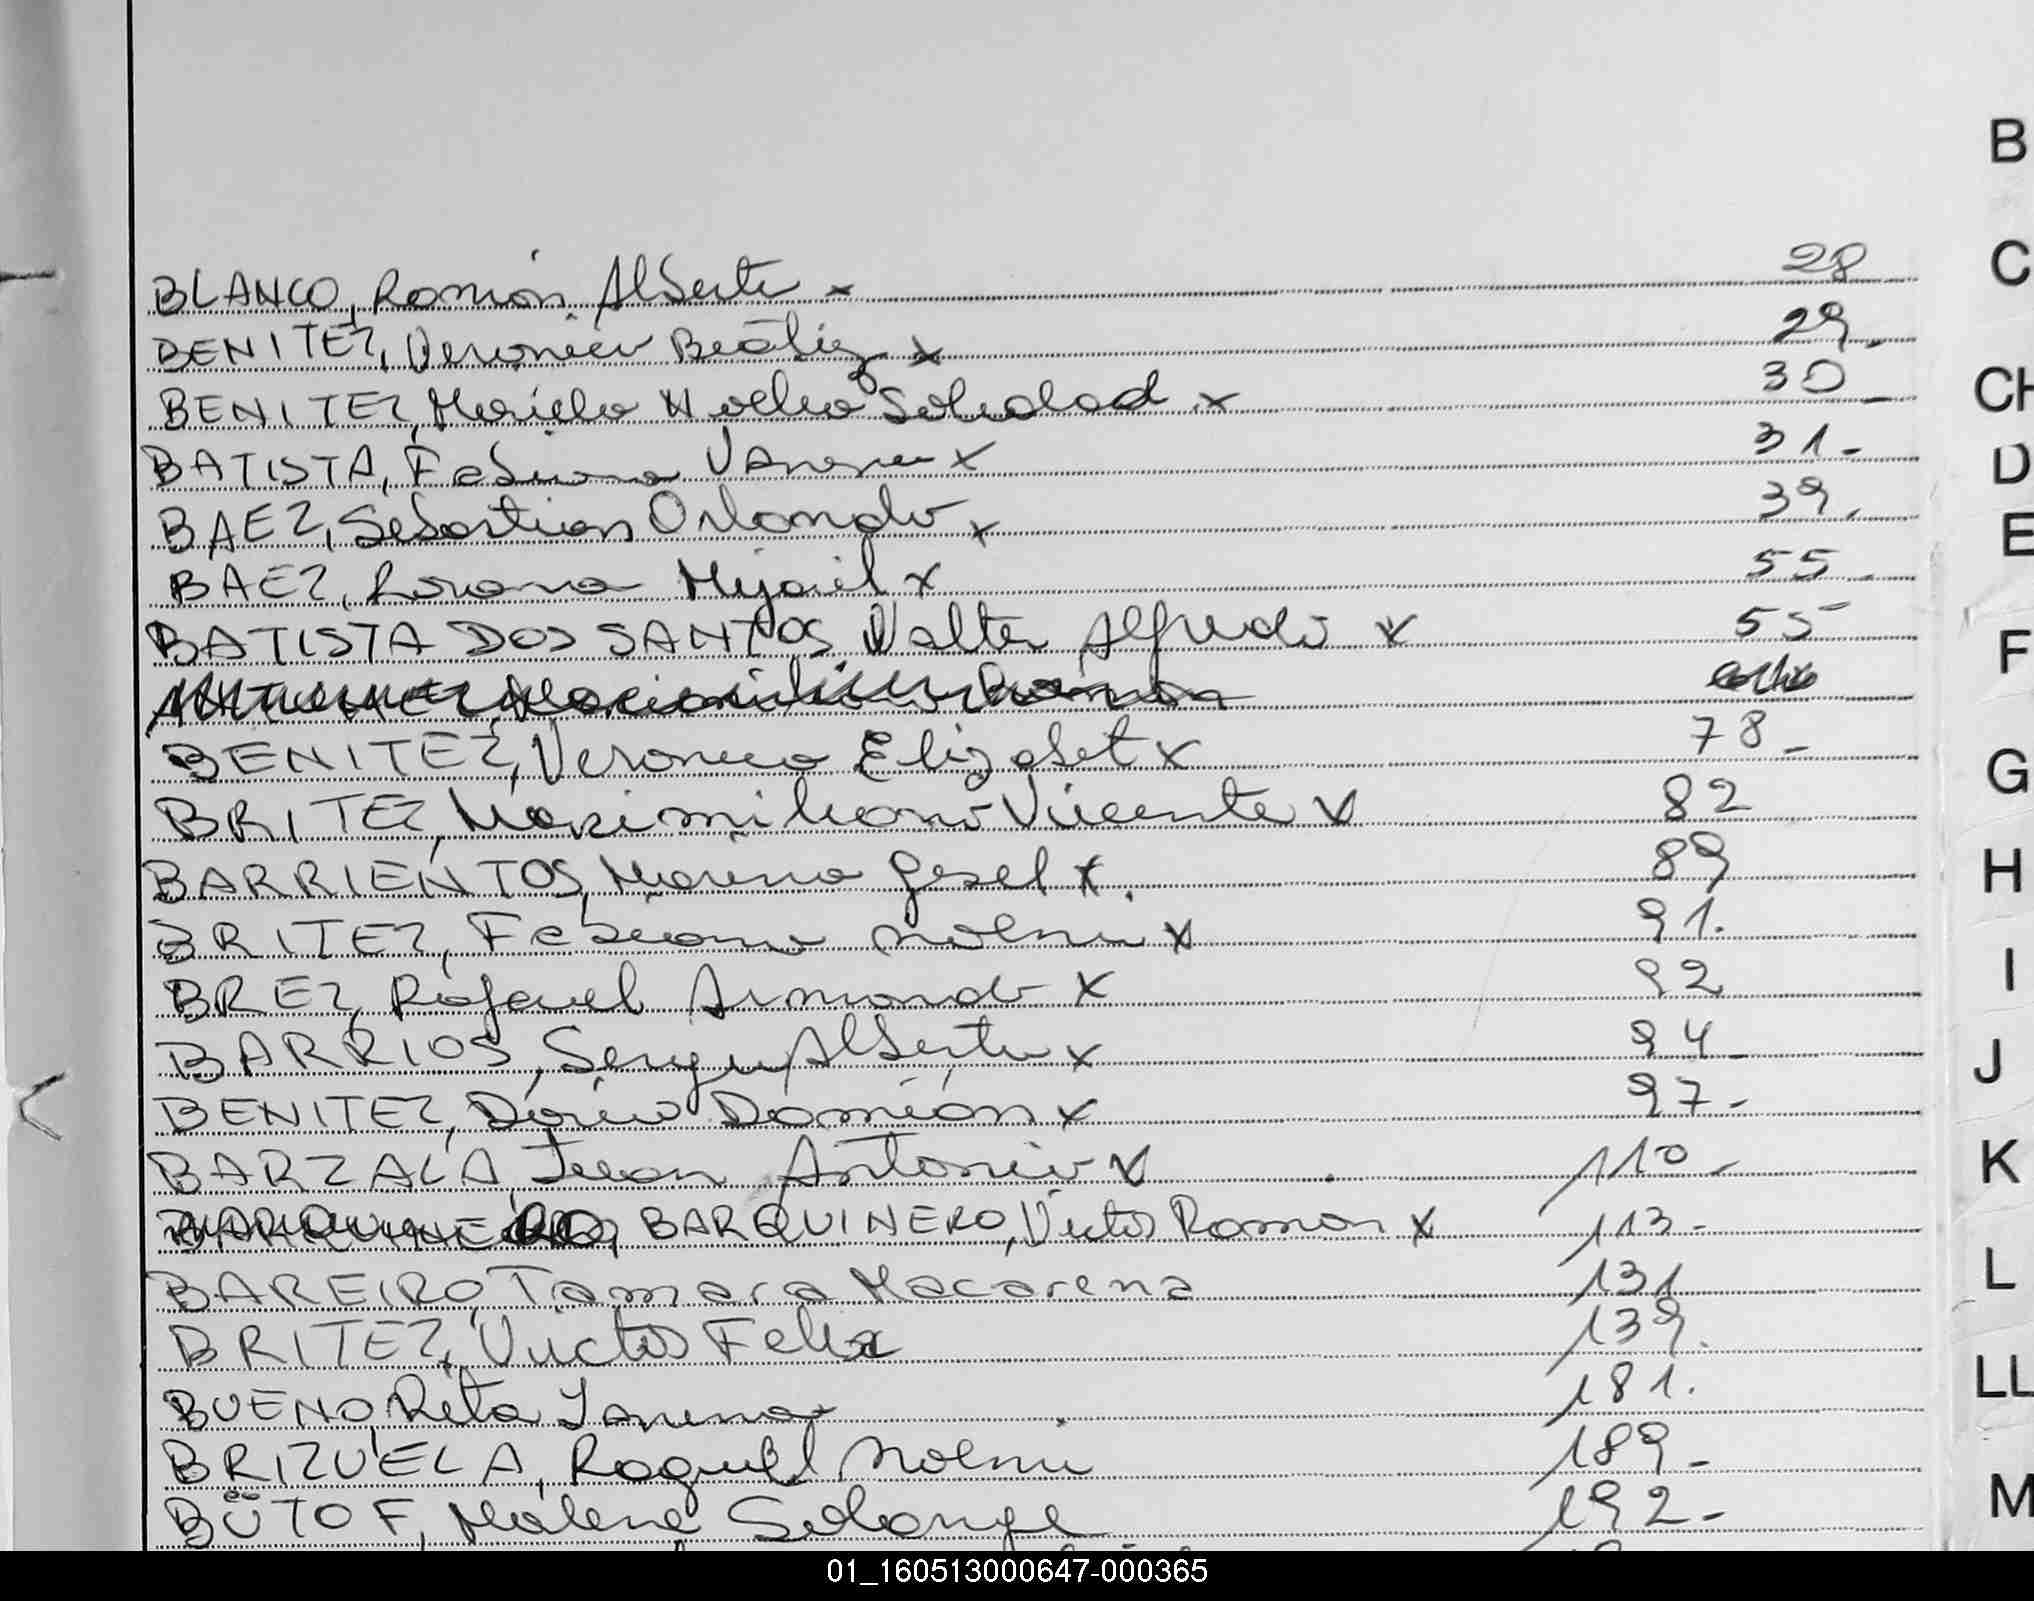 BLANCO, Ramón Alberto x 28
BENITEZ, Veronica Beatriz x 29.
BENITEZ, Mariela Noelia Soledad x 30
BATISTA, Fabiana Vanesa x 31-
BAEZ, Sebastian Orlando x 39.
BAEZ, Lorana Mijail x 55
BATISTA DOS SANTOS Walter Alfredo x 55
BENITEZ, Veronica Elizabet x 78-
BRITEZ, Maximiliano Vicente x 82
BARRIENTOS, Marina Gesel x. 89
BRITEZ, Fabiana Noemi x 91.
BREZ, Rafael Armando x 92
BARRIOS, Sergio Alberto x 94-
BENITEZ, Dario Damián x 97-
BARZALA, Juan Antonio x 110-
BARQUINERO, Victor Ramon x 113-
BAREIRO, Tamara Macarena 131
BRITEZ, Victor Felix 139.
BUENO, Rita Yanina 181.
BRIZUELA, Raquel Noemi 189-
BÜTOF, Malena Solange 192-
B
C
CH
D
E
F
G
H
I
J
K
L
LL
M
01_160513000647-000365